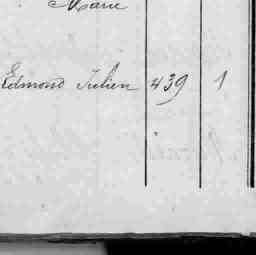 Marie
Edmond Julien 439 1